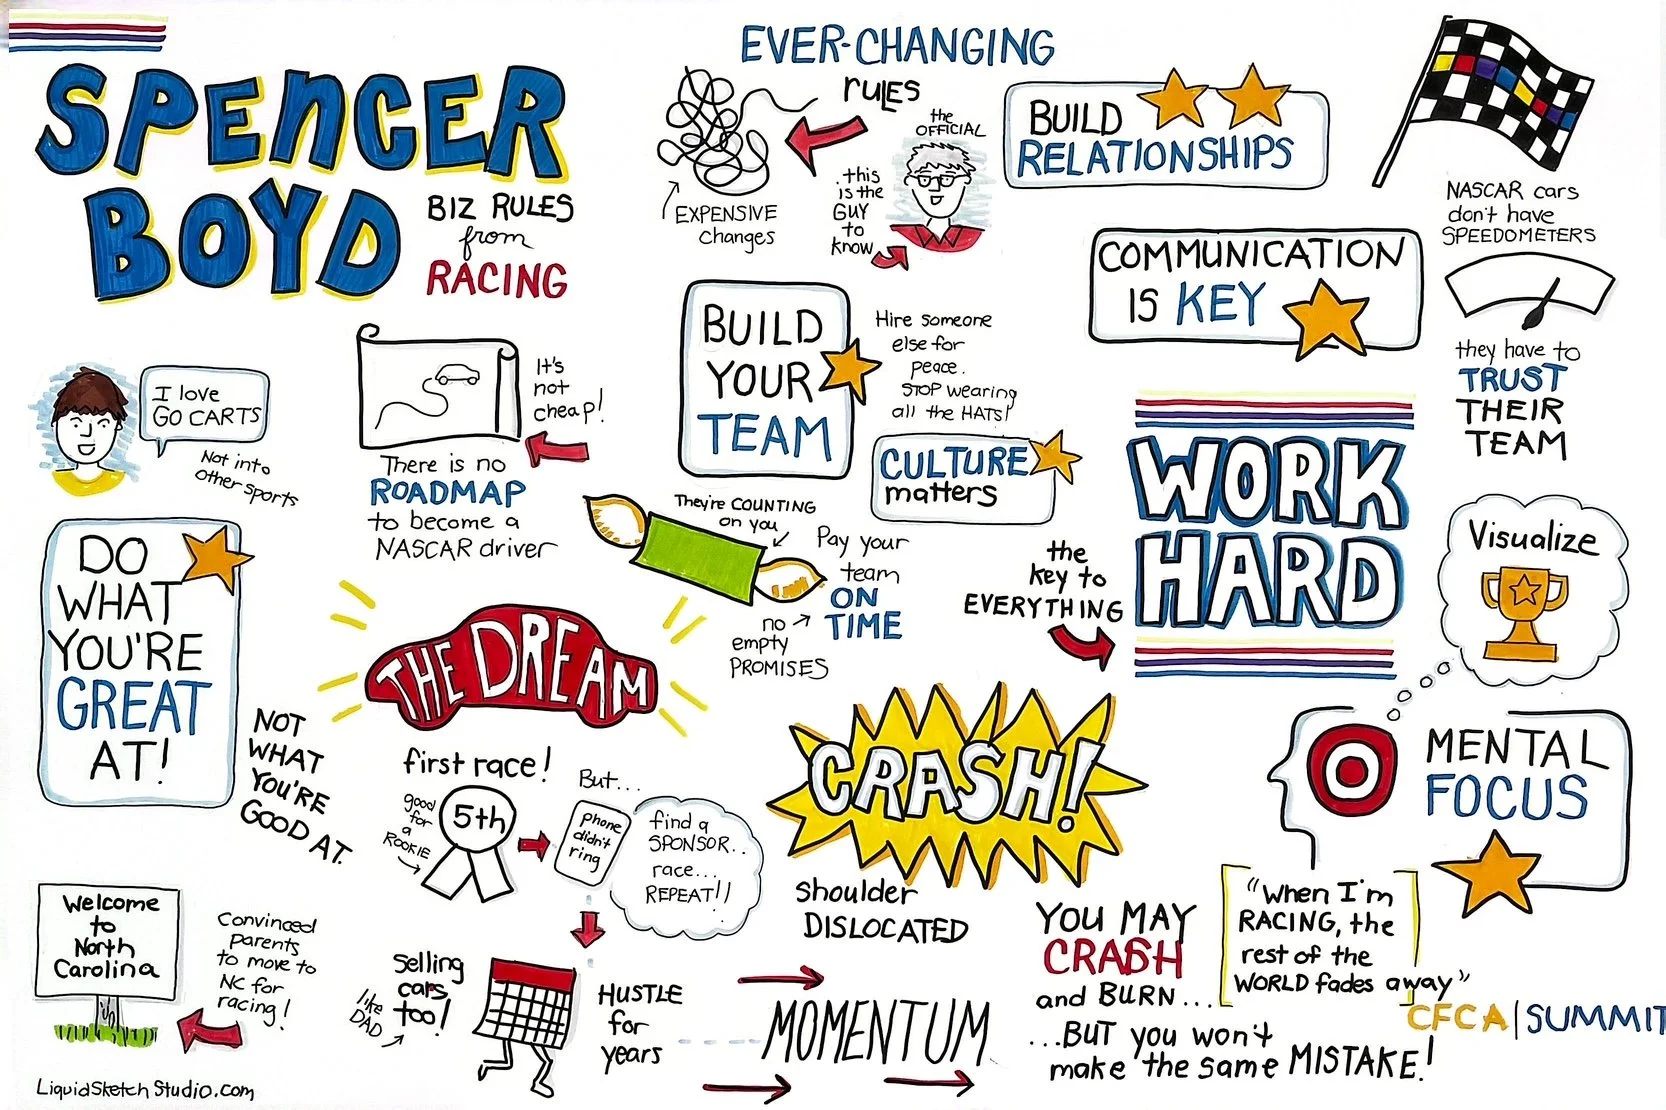 SPENCER
BOYD
BIZ RULES
from
RACING
I love
GO CARTS
Not into
other sports
It's
not
cheap!
There is no
ROADMAP
to become a
NASCAR driver
DO
WHAT
YOU'RE
GREAT
AT!
NOT
WHAT
YOU'RE
GOOD AT.
Welcome
to
North
Carolina
Convinced
parents
to move to
NC for
racing!
LiquidSketch Studio.com
THE DREAM
first race!
good
for
a
ROOKIE
5th
But...
Phone
didn't
ring
find a
SPONSOR..
race...
REPEAT!!
Selling
cars
too!
like
DAD
HUSTLE
for
years
MOMENTUM
EVER-CHANGING
rULES
EXPENSIVE
changes
the
OFFICIAL
this
is the
GUY
to
know
BUILD
RELATIONSHIPS
BUILD
YOUR
TEAM
Hire someone
else for
peace.
STOP wearing
all the HATS!
CULTURE
matters
They're COUNTING
on you
Pay your
team
ON
TIME
no
empty
PROMISES
COMMUNICATION
IS KEY
NASCAR cars
don't have
SPEEDOMETERS
they have to
TRUST
THEIR
TEAM
the
key to
EVERYTHING
WORK
HARD
Visualize
MENTAL
FOCUS
CRASH!
shoulder
DISLOCATED
YOU MAY
CRASH
and BURN...
...BUT you won't
make the same MISTAKE!
"When I'm
RACING, the
rest of the
WORLD fades away"
CFCA|SUMMIT